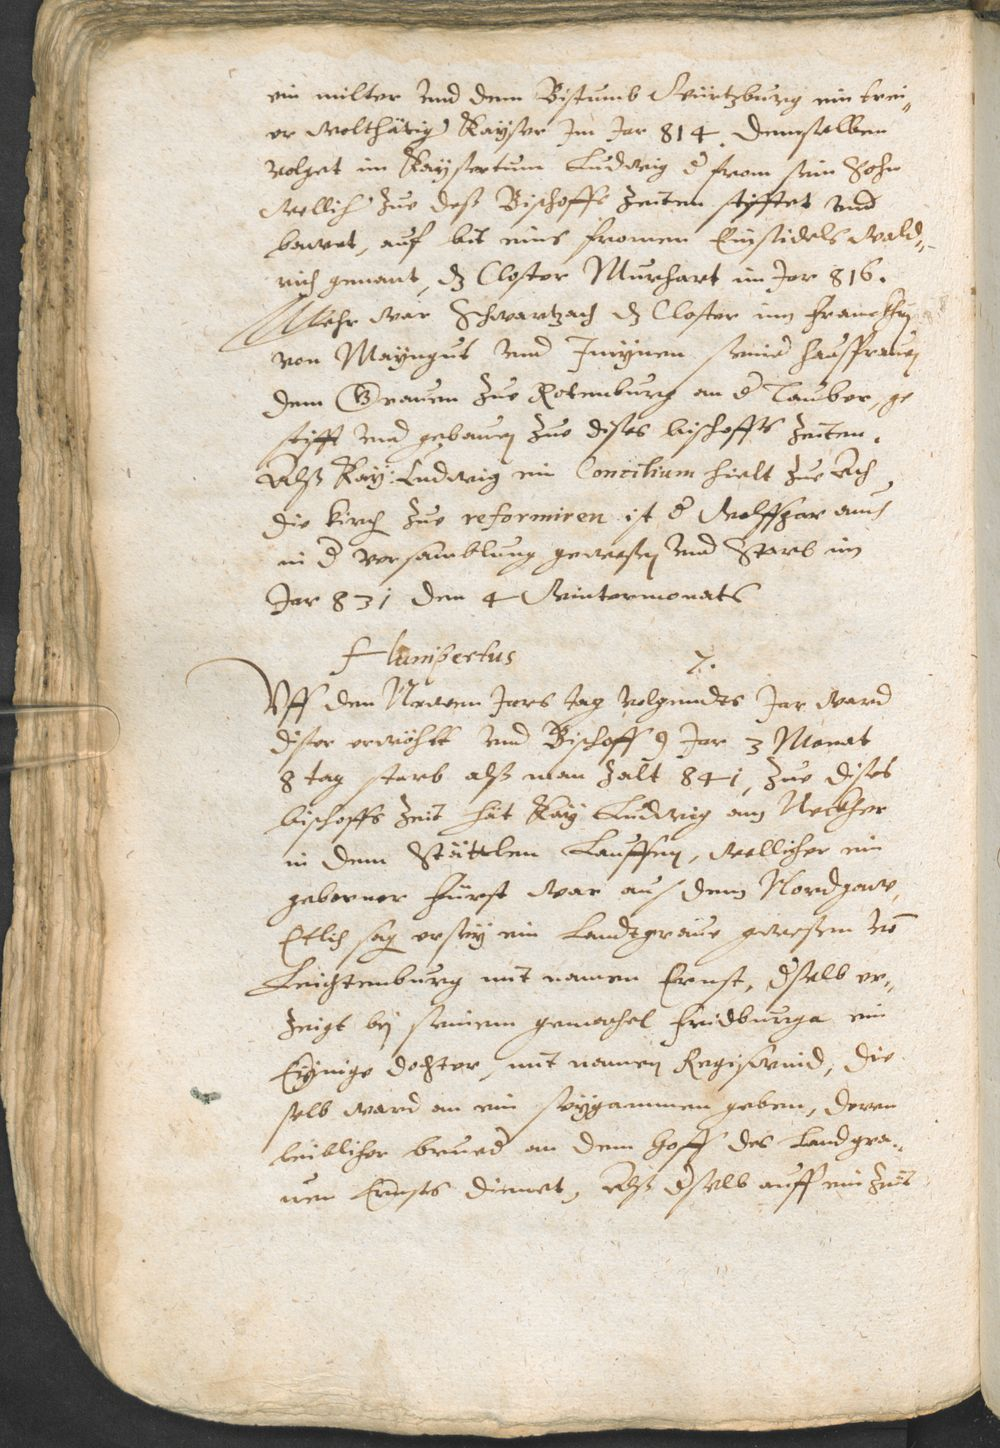 ein milter und dem Bistumb Würtzburg ein trei„
er wolthätig) Kayser Im Jar 814. demselben
volget im Kaysertum Ludwig d from sein Sohn
Wellich zue deß Bischoffs zeiten styfftet und
bawet, auf bit eins fromen Einsidels Wald„
rich genant, dz Closter Murhart im Jar 816.
Mehr war Schwartzach dz Closter im Franckhen
von Mayngut und Imynen seine haussfrauen
dem Grauen zue Rotenburg an d Tauber, ge
stifft und gebauen zue dises bischoffs zeiten.
Alß Kay: Ludwig ein Concilium hielt zue Ach
die Kirch zue reformiren ist d Wolffgar auch
in d versamblung gewesen und Starb im
Jar 831 den 4 Wintermonats
Humbertus 7.
Uff den Newen Jars tag volgendes Jar ward
diser erwöhlt und Bischoff 9 Jar 3 Monat
8 tag starb alß man zalt 841, zue dises
bischoffs zeit hat Kay Ludwig am Neckher
in dem Stättlen Lauffen, wellicher ein
geborner Fürst war aus dem Nordgaw,
Etlich sag er sey ein Landtgraue gwesen vo
Leichtenburg mit namen Ernst, dselb er„
zeigt bey seinem gemachel Fridburga ein
Eynige dochter, mit namen Regiswind, die
selb ward an ein söygammen geben, deren
leiblicher brued an dem hoff des Landgra„
uen Ernsts dienet, Alß dselb auff ein Zeit